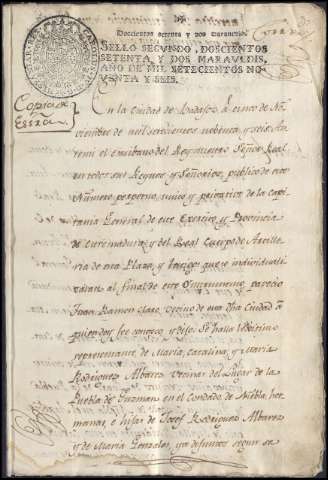 Doscientos setenta y dos maravedis.
SELLO SEGUNDO, DOSCIENTOS
SETENTA Y DOS MARAVEDIS,
AÑO DE MIL SETECIENTOS NO-
VENTA Y SEIS.
Copia de
Essra
En la Ciudad de Badajoz a cinco de No
viembre de mil setecientos nobenta y seis, An
temi el Escribano del Rey nuestro Señor Real
en todos sus Reynos y Señorios, publico de este
Número perpetuo, unico y privativo de la capi
tania General de este Exercito y Provincia
de Extremadura, y del Real Cuerpo de Artille
ria de esta Plaza, y testigos que se individuali
zaran al final de este Ynstrumento, parecio
Juan Ramon Claro vecino de esta dha Ciudad à
quien doy fee conozco y dijo: Se halla
representante de Maria, Catalina, y Maria
Rodriguez Albarez vecinas del Lugar de la
Puebla de Guzman en el Condado de Niebla, her
manas, è hijas de Josef Rodriguez Albarez
y de Maria Gonzalez, ya difuntos segun se